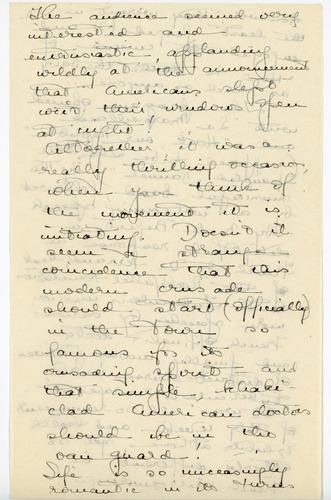 The audience seemed very
interested and
enthusiastic, applauding
wildly at the announcement
that Americans slept
with their windows open
at night!
Altogether, it was a
really thrilling occasion,
when you think of
the movement it is
initiating. Doesn't it
seem a strange
coincidence that this
modern crusade
should start (officially)
in the town so
famous for its
crusading spirit - and
that simple, khaki-
clad American doctors
should be in the
van guard!
Life is so unceasingly
romantic in its turns